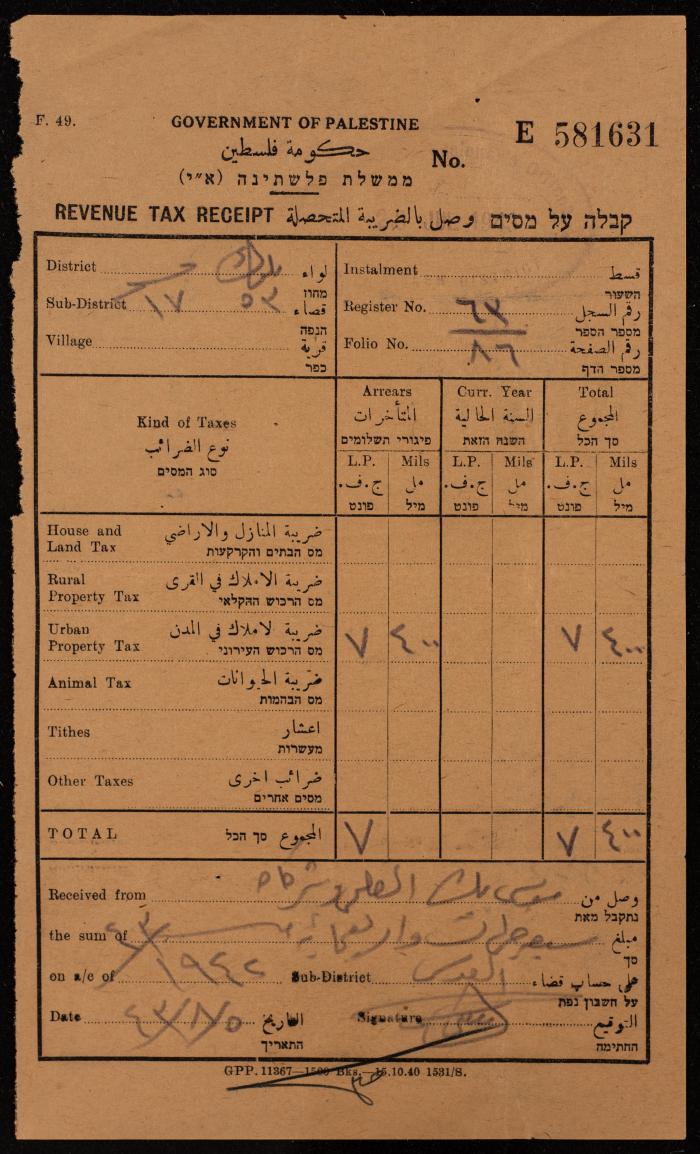 F. 49.
GOVERNMENT OF PALESTINE
حكومة فلسطين
ממשלת פלשתינה (א״י)
No. E 581631
REVENUE TAX RECEIPT وصل بالضريبة المتحصلة קבלה על מסים
District لواء מחוז
Sub-District ١٧ ٥٣ قضاء הנפה
Village قرية כפר
Instalment قسط השעור
Register No. ٦٣ رقم السجل מספר הספר
Folio No. ٨٦ رقم الصفحة מספר הדף
Kind of Taxes
نوع الضرائب
סוג המסים
Arrears Curr. Year Total
المتأخرات السنة الحالية المجموع
פיגורי תשלומים השנה הזאת סך הכל
L.P. Mils L.P. Mils L.P. Mils
ج.ف. مل ج.ف. مل ج.ف. مل
פונט מיל פונט מיל פונט מיל
House and Land Tax ضريبة المنازل والاراضي
מס הבתים והקרקעות
Rural Property Tax ضريبة الاملاك في القرى
מס הרכוש החקלאי
Urban Property Tax ضريبة لاملاك في المدن ٧ ٤٠٠ ٧ ٤٠٠
מס הרכוש העירוני
Animal Tax ضريبة الحيوانات
מס הבהמות
Tithes اعشار
מעשרות
Other Taxes ضرائب اخرى
מסים אחרים
TOTAL المجموع סך הכל ٧ ٧ ٤٠٠
Received from وصل من
נתקבל מאת
the sum of مبلغ
סך
on a/c of ١٩٤٢ Sub-District القدس على حساب قضاء
על חשבון נפת
Date ٤٣/١/٥ التاريخ Signature التوقيع
התאריך החתימה
GPP. 11367—1500 Bks.—15.10.40 1531/S.